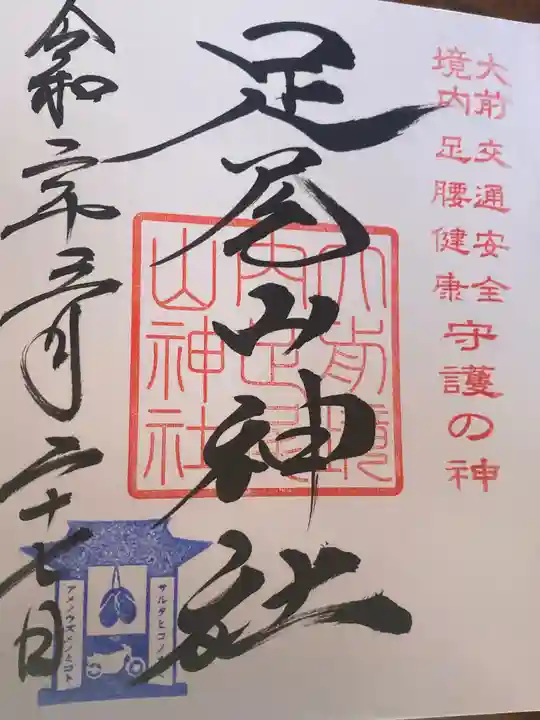 大前交通安全
境内足腰健康
守護の神
足尾山神社
大前境
内足尾
山神社
令和二年三月二十七日
サルタヒコノ
アメノウズメノミコト